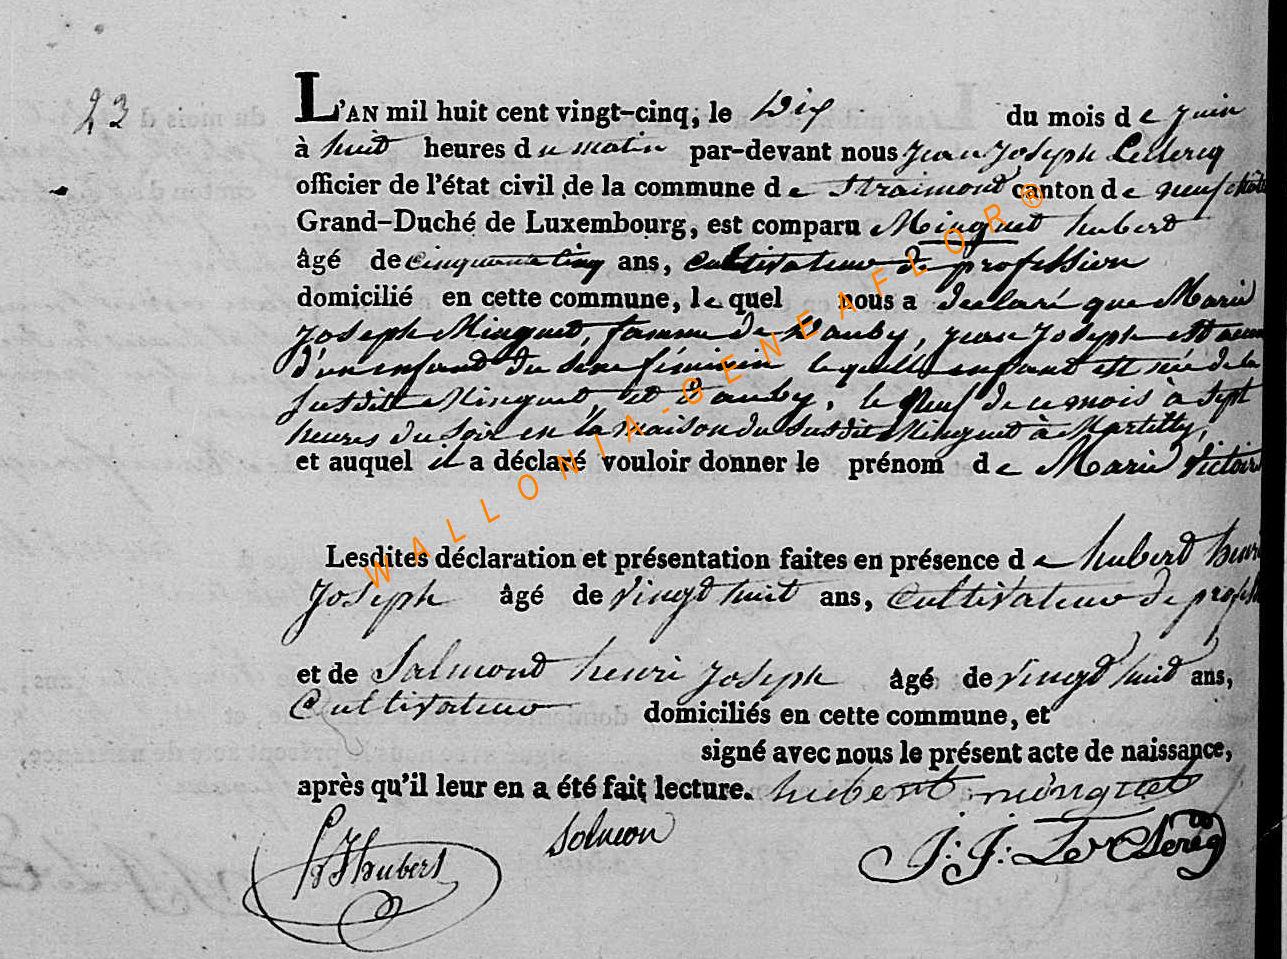 23
L'AN mil huit cent vingt-cinq, le Dix du mois de juin
à huit heures du matin par-devant nous jean joseph Leclercq
officier de l'état civil de la commune de Straimont canton de neufchat
Grand-Duché de Luxembourg, est comparu Minguet hubert
âgé de cinquante cinq ans, cultivateur de profession
domicilié en cette commune, le quel nous a declaré que Marie
joseph Minguet, famme de Dauby, jean joseph est
d'un enfand du sexe féminin lequelle enfant est née de la
susditte Minguet et Dauby, le neuf de ce mois à sept
heures du soir en la maison du susdit Minguet à Martilly,
et auquel il a déclaré vouloir donner le prénom de Marie Victoire
Lesdites déclaration et présentation faites en présence de hubert henri
joseph âgé de vingt huit ans, cultivateur de profess
et de Salmond henri joseph âgé de vingt huit ans,
Cultivateur domiciliés en cette commune, et
signé avec nous le présent acte de naissance,
après qu'il leur en a été fait lecture. hubert minguet
hJhubert Solmon J: J: Le Clercq
WALLONIA-GENEAFLOR®